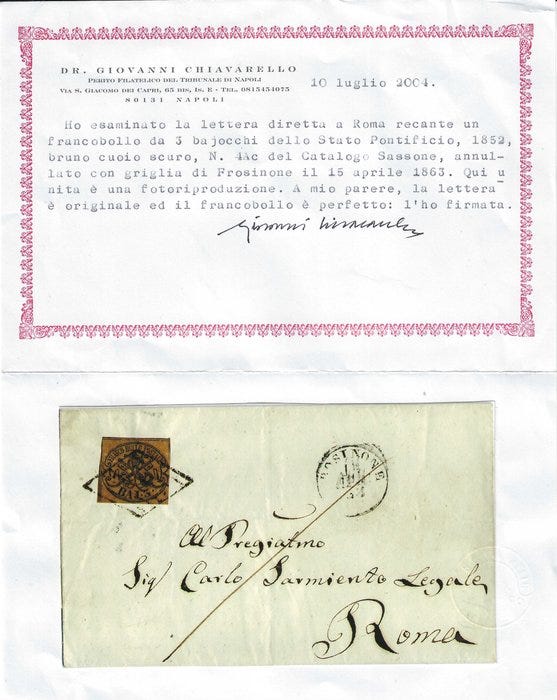 DR. GIOVANNI CHIAVARELLO
PERITO FILATELICO DEL TRIBUNALE DI NAPOLI
VIA S. GIACOMO DEI CAPRI, 65 BIS, IS. E - TEL. 0815454075
80131 NAPOLI
10 luglio 2004.
Ho esaminato la lettera diretta a Roma recante un
francobollo da 3 bajocchi dello Stato Pontificio, 1852,
bruno cuoio scuro, N. 4Ac del Catalogo Sassone, annul-
lato con griglia di Frosinone il 15 aprile 1863. Qui u
nita è una fotoriproduzione. A mio parere, la lettera
è originale ed il francobollo è perfetto: l'ho firmata.
BAJ. 3
FROSINONE
Al Pregiatmo
Sigr Carlo Sarmiento Legale
Roma